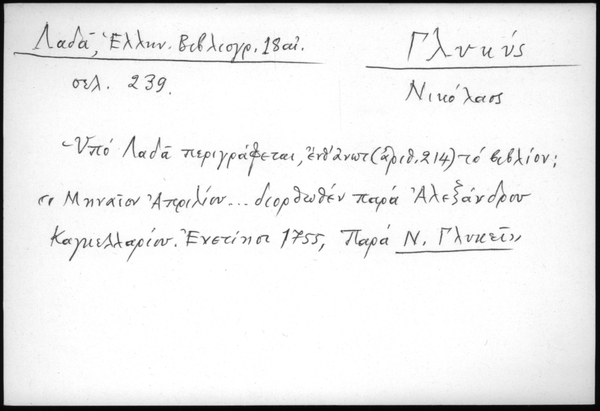 Λαδᾶ, Ἑλλην. Βιβλιογρ. 18 αἰ.
σελ. 239.
Γλυκύς
Νικόλαος
Ὑπό Λαδᾶ περιγράφεται, ἐνθ' ἀνωτ (ἀριθ. 214) τό βιβλίον:
« Μηναῖον Ἀπριλίου... διορθωθέν παρά Ἀλεξάνδρου
Καγκελλαρίου. Ἐνετίησι 1755, Παρά Ν. Γλυκεῖ»